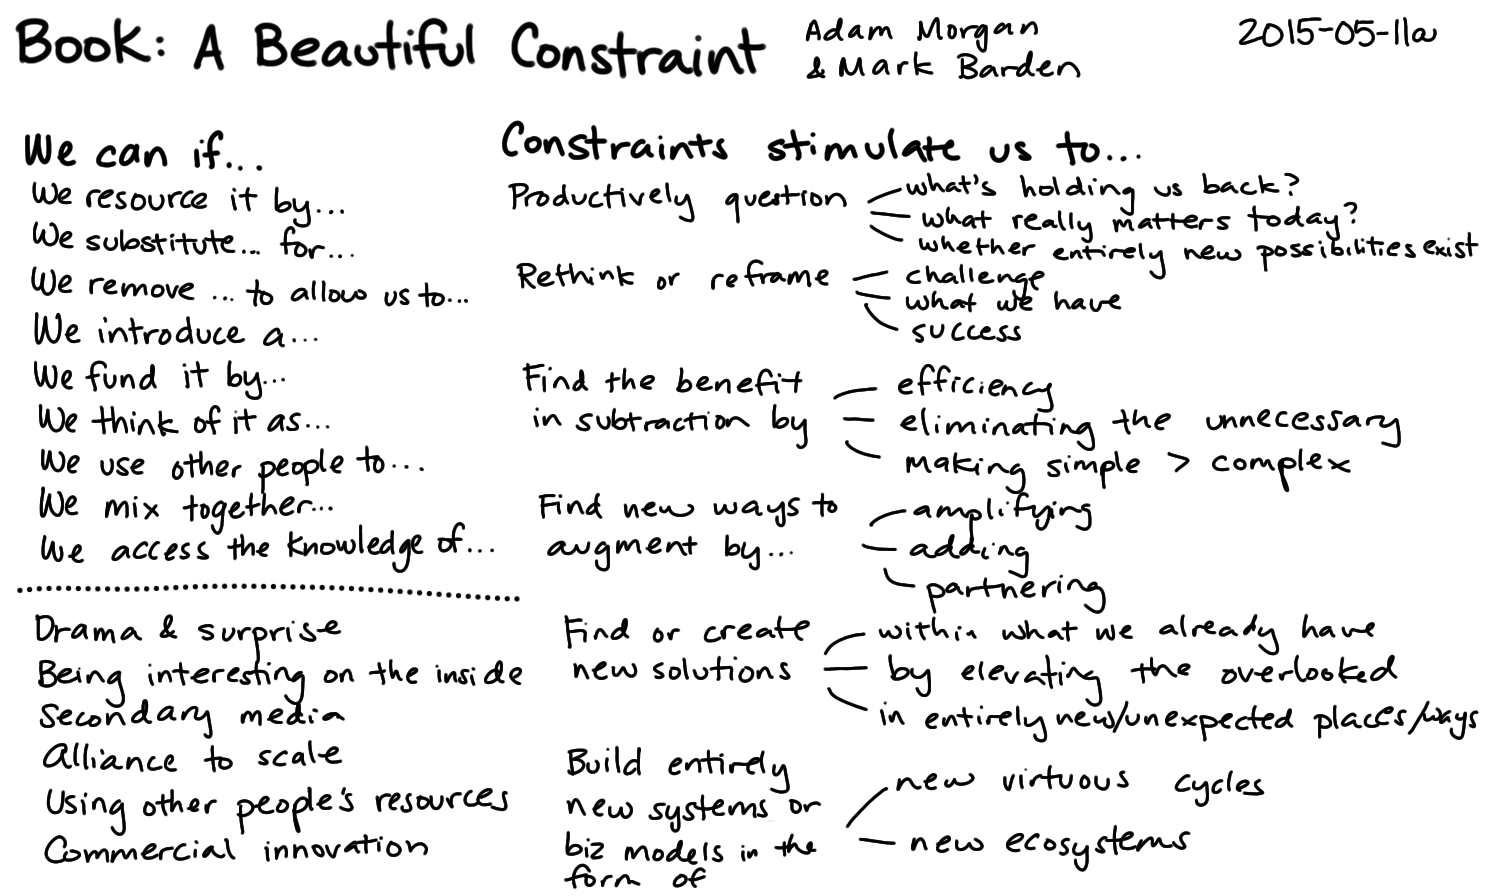 Book: A Beautiful Constraint
Adam Morgan
& Mark Barden
2015-05-11a
We can if...
We resource it by...
We substitute... for...
We remove ... to allow us to...
We introduce a...
We fund it by...
We think of it as...
We use other people to...
We mix together...
We access the knowledge of...
Drama & surprise
Being interesting on the inside
Secondary media
Alliance to scale
Using other people's resources
Commercial innovation
Constraints stimulate us to...
Productively question
what's holding us back?
what really matters today?
whether entirely new possibilities exist
Rethink or reframe
challenge
what we have
success
Find the benefit
in subtraction by
efficiency
eliminating the unnecessary
making simple > complex
Find new ways to
augment by...
amplifying
adding
partnering
Find or create
new solutions
within what we already have
by elevating the overlooked
in entirely new/unexpected places/ways
Build entirely
new systems or
biz models in the
form of
new virtuous cycles
new ecosystems